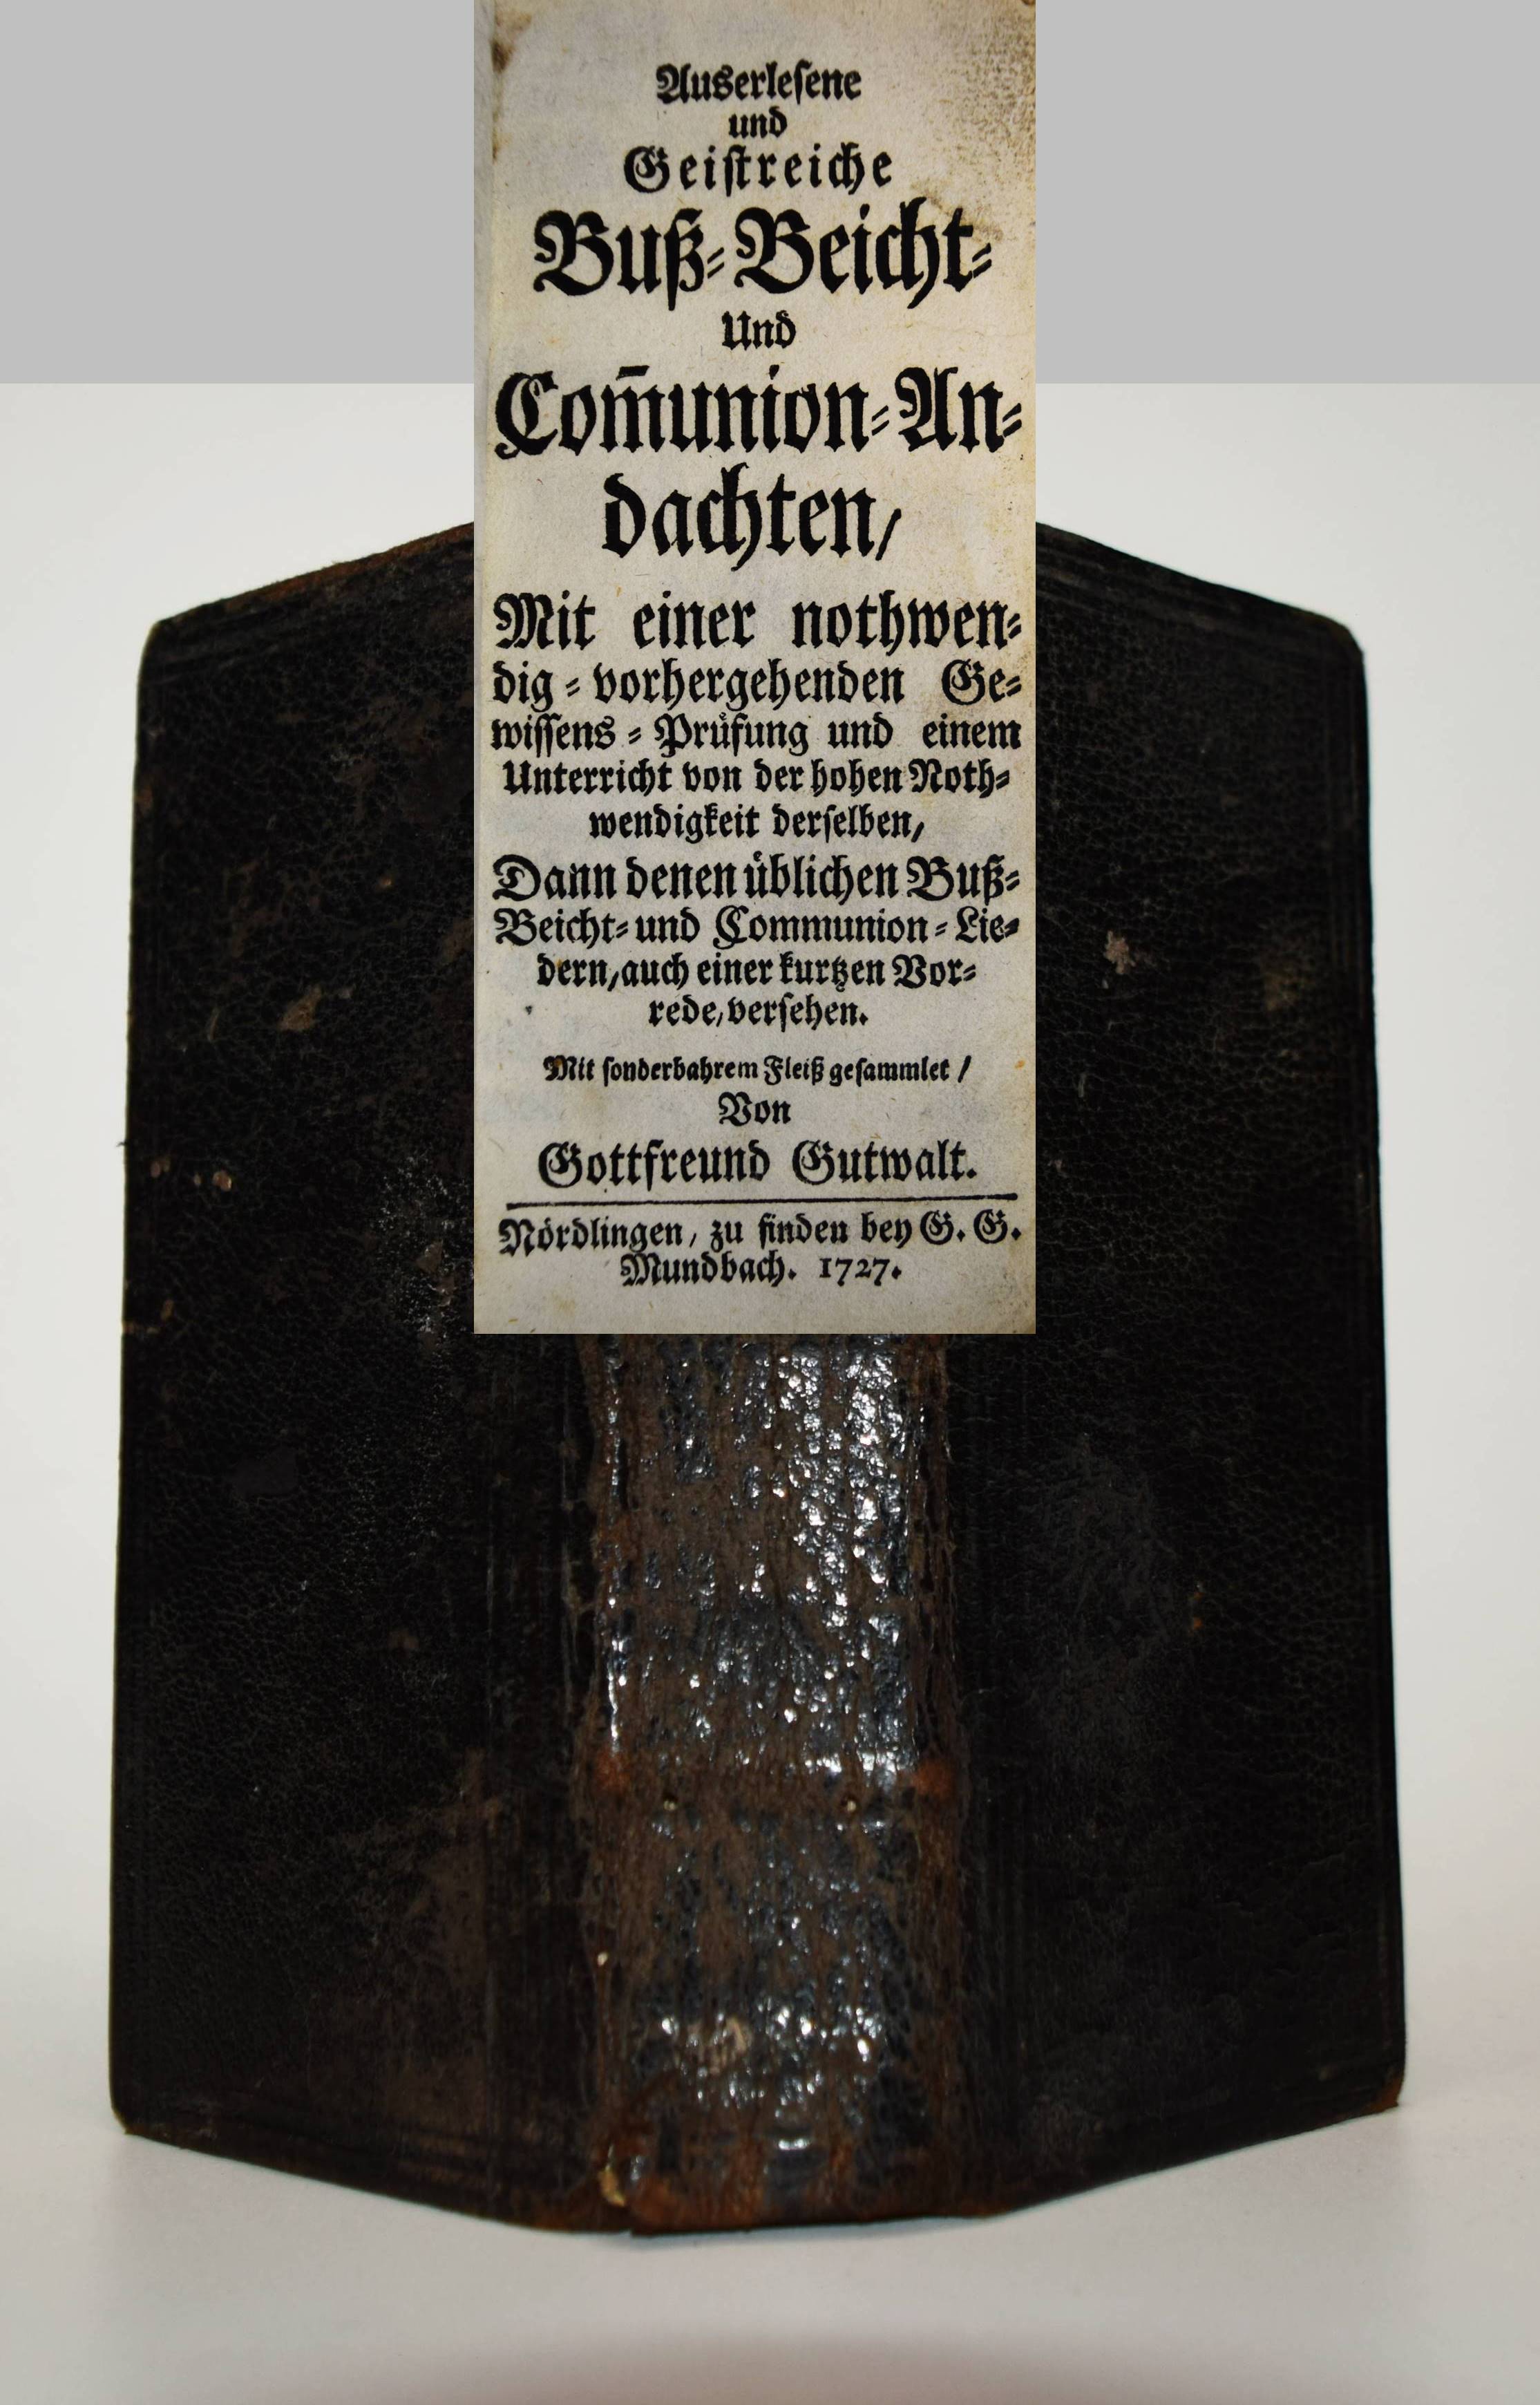 Auserlesene
und
Geistreiche
Buß-Beicht-
Und
Com̄union-An-
dachten/
Mit einer nothwen-
dig-vorhergehenden Ge-
wissens-Prüfung und einem
Unterricht von der hohen Noth-
wendigkeit derselben/
Dann denen üblichen Buß-
Beicht- und Communion-Lie-
dern/ auch einer kurtzen Vor-
rede/ versehen.
Mit sonderbahrem Fleiß gesammlet /
Von
Gottfreund Gutwalt.
Nördlingen, zu finden bey G. G.
Mundbach. 1727.